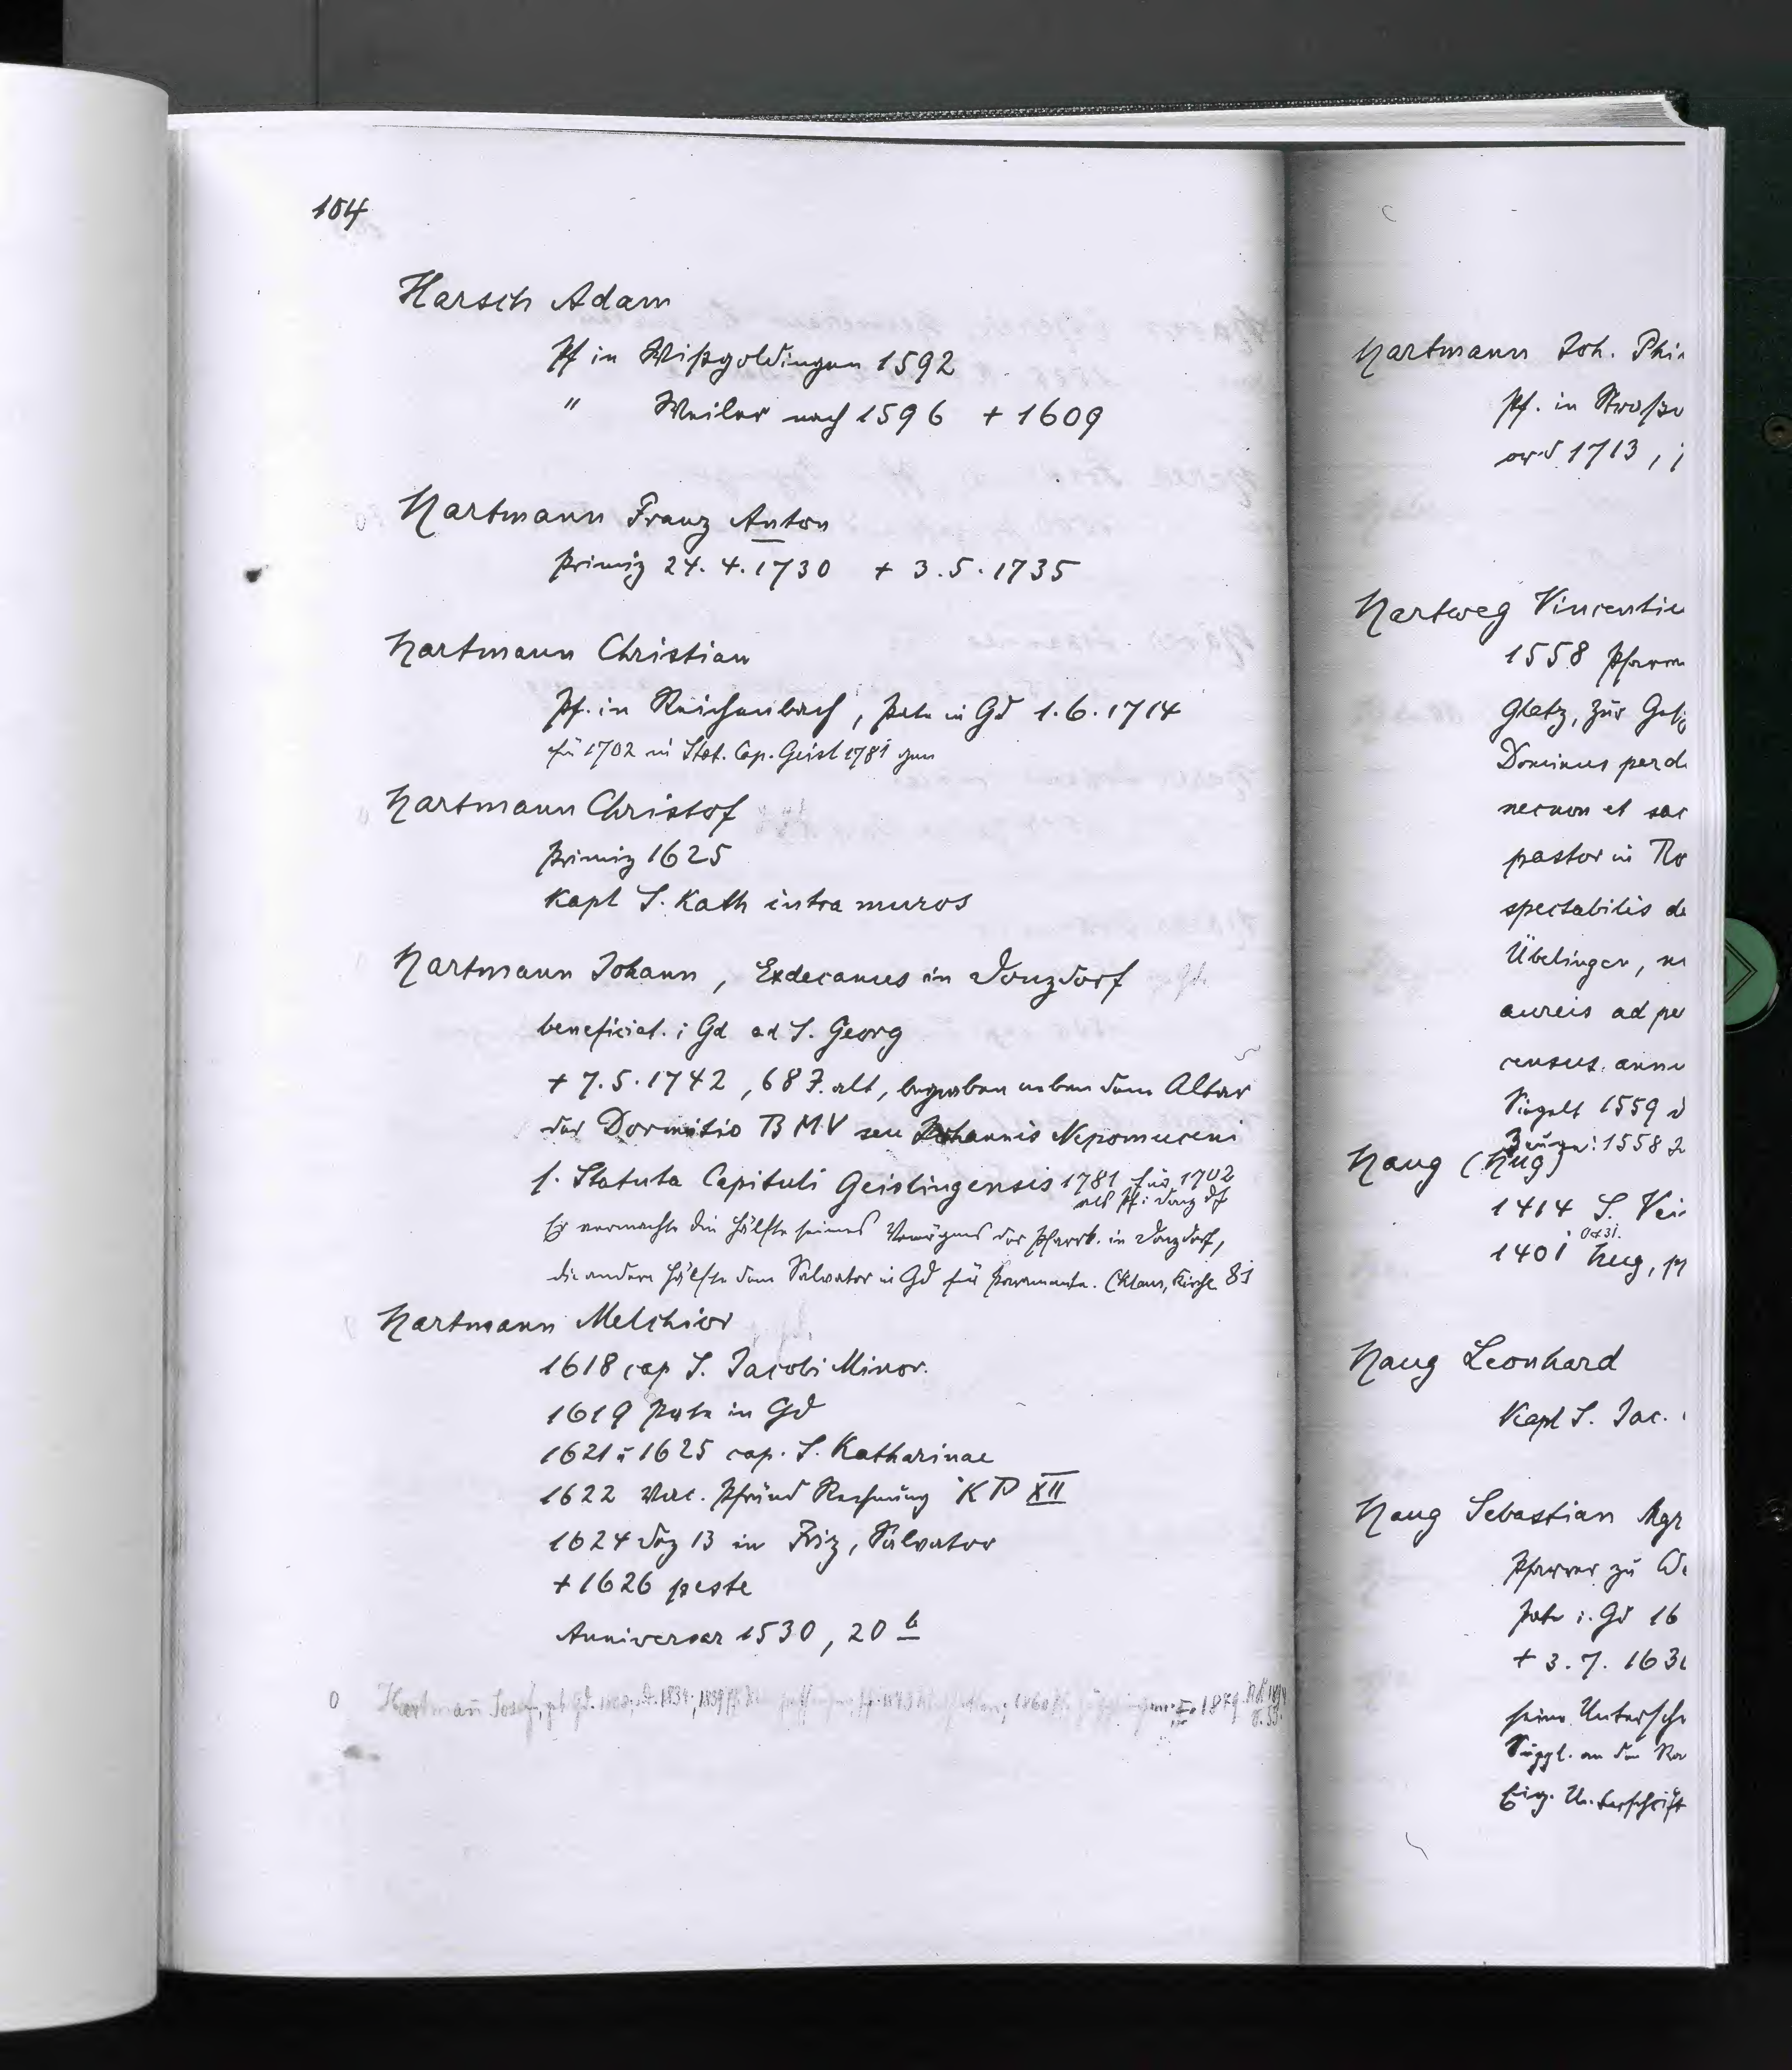 104
Harsch Adam
Pf in Wißgoldingen 1592
" Weiler nach 1596 + 1609
Hartmann Franz Anton
Primiz 24. 4. 1730 + 3. 5. 1735
Hartmann Christian
Pf. in Reichenbach, Pate in Gd 1. 6. 1714
für 1702 in Stat. Cap. Geisl 1781 gen
Hartmann Christof
Primiz 1625
Kapl S. Kath intra muros
Hartmann Johann, Exdecanus in Donzdorf
beneficiat. i Gd ad S. Georg
+ 7. 5. 1742, 68 J. alt, begraben neben dem Altar
der Dormitio BMV seu Johannis Nepomuceni
s. Statuta Capituli Geislingensis 1781 für 1702
als Pf i Donzdf
Er vermachte die Hälfte seines Vermögens der Pfarrk. in Donzdorf,
die andere Hälfte dem Salvator in Gd für Paramente. (Klaus, Kirche 81
Hartmann Melchior
1618 cap S. Jacobi Minor.
1619 Pate in Gd
1621 : 1625 cap. S. Katharinae
1622 Pfründ Rechnung KP XII
1624 Dez 13 in Salvator
+ 1626 peste
Anniversar 1530, 20
0 Hartmann Josef, 1834, 1839 1860 1879
Hartmann Joh. Phi
Pf. in Straß
ord 1713,
Hartweg Vincentiu
1558 Pfarr
Glatz, zur
Dominus perd
necnon et sac
pastor in Ro
spectabilis de
Übelingen,
aureis ad pe
census annu
Siegelt 1559 d
Zeugen: 1558
Haug (Hug)
1414 S. Vei
Okt 31.
1401 Hug,
Haug Leonhard
Kapl S. Jac.
Haug Sebastian Mgr
Pfarrer zu
Pate i. Gd 16
+ 3. 7. 163
seine Unterschr
Suppl. an den Ra
Eig. Unterschrift